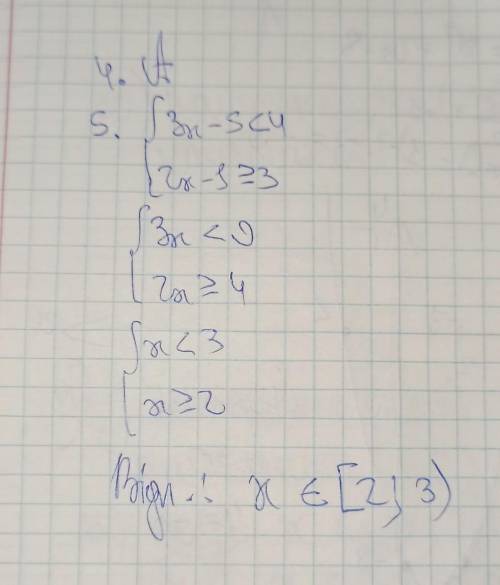 4. А
5. { 3x - 5 < 4
{ 2x - 1 ≥ 3
{ 3x < 9
{ 2x ≥ 4
{ x < 3
{ x ≥ 2
Відп.: x ∈ [2; 3)